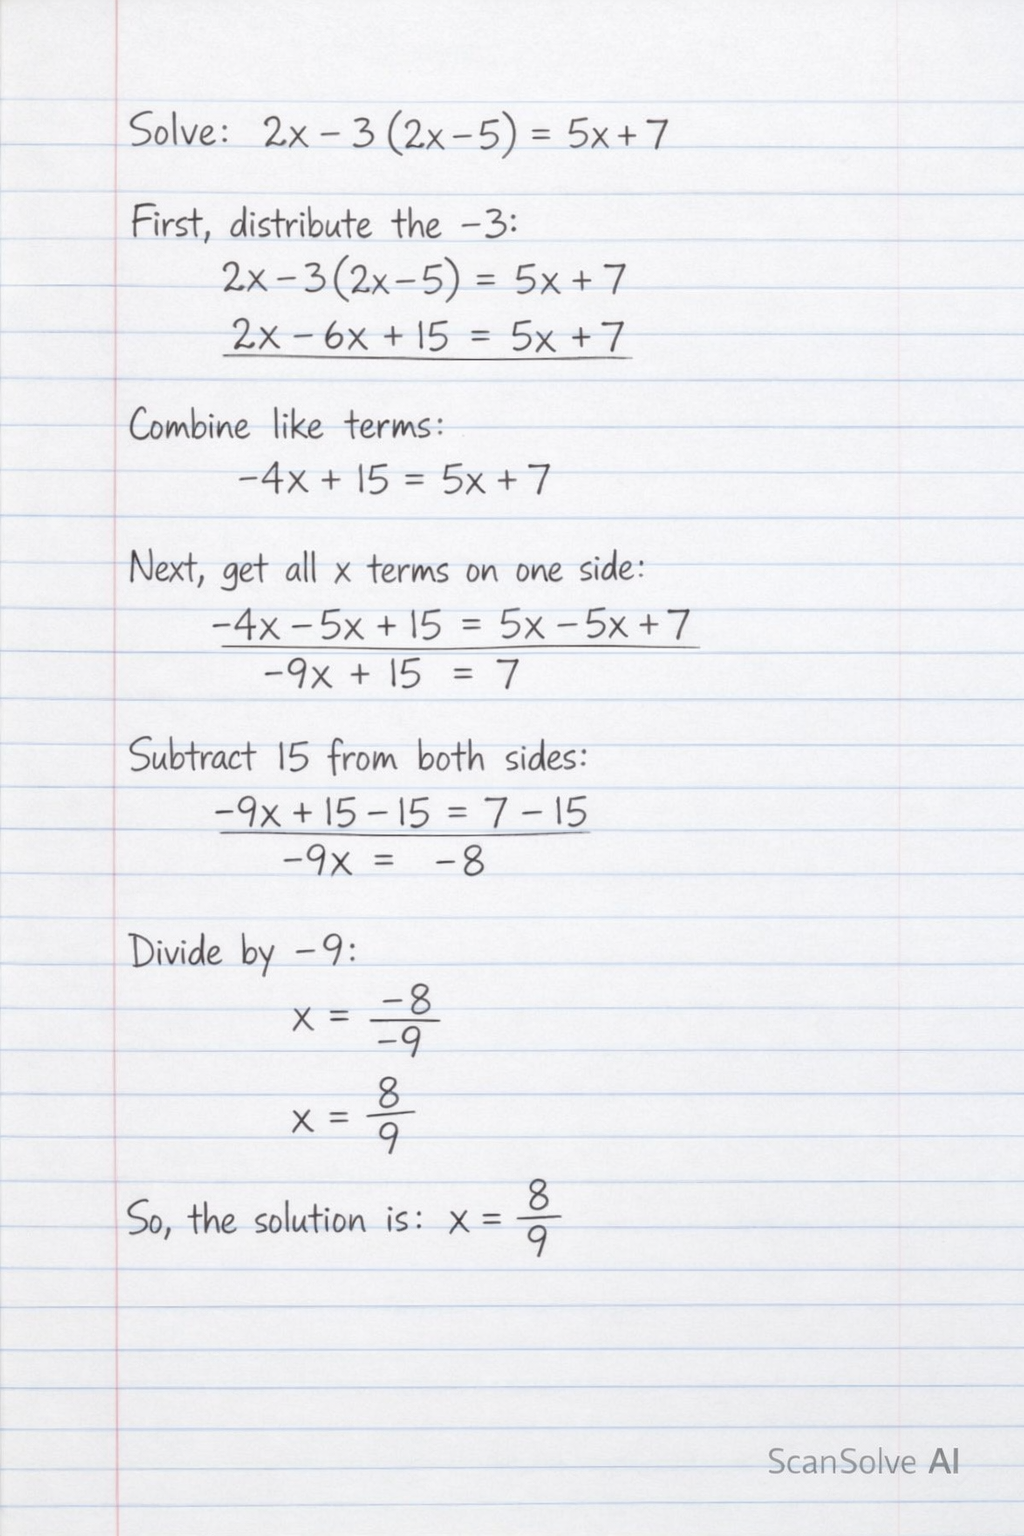 Solve: 2x - 3 (2x - 5) = 5x + 7
First, distribute the -3:
2x - 3(2x - 5) = 5x + 7
2x - 6x + 15 = 5x + 7
Combine like terms:
-4x + 15 = 5x + 7
Next, get all x terms on one side:
-4x - 5x + 15 = 5x - 5x + 7
-9x + 15 = 7
Subtract 15 from both sides:
-9x + 15 - 15 = 7 - 15
-9x = -8
Divide by -9:
x = -8/-9
x = 8/9
So, the solution is: x = 8/9
ScanSolve AI